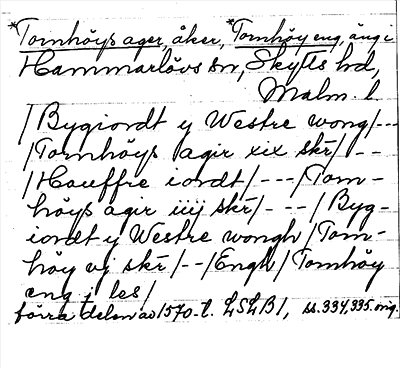 *Tornhöys ager, åker, *Tornhöy eng, äng i
Hammarlövs sn, Skytts hd,
Malm. l.
/ Bygiordt y Westre wong / ---
/ Tornhöys agir xix skr / --
/ Houffre iordt / --- / Torn-
höys agir iiij skr / - -- / Byg-
iordt y Westre wongh / Torn-
höy vj skr / -- / Engh / Tornhöy
eng j les /
förra delen av 1570-t. LSLB 1, ss. 334, 335. orig.